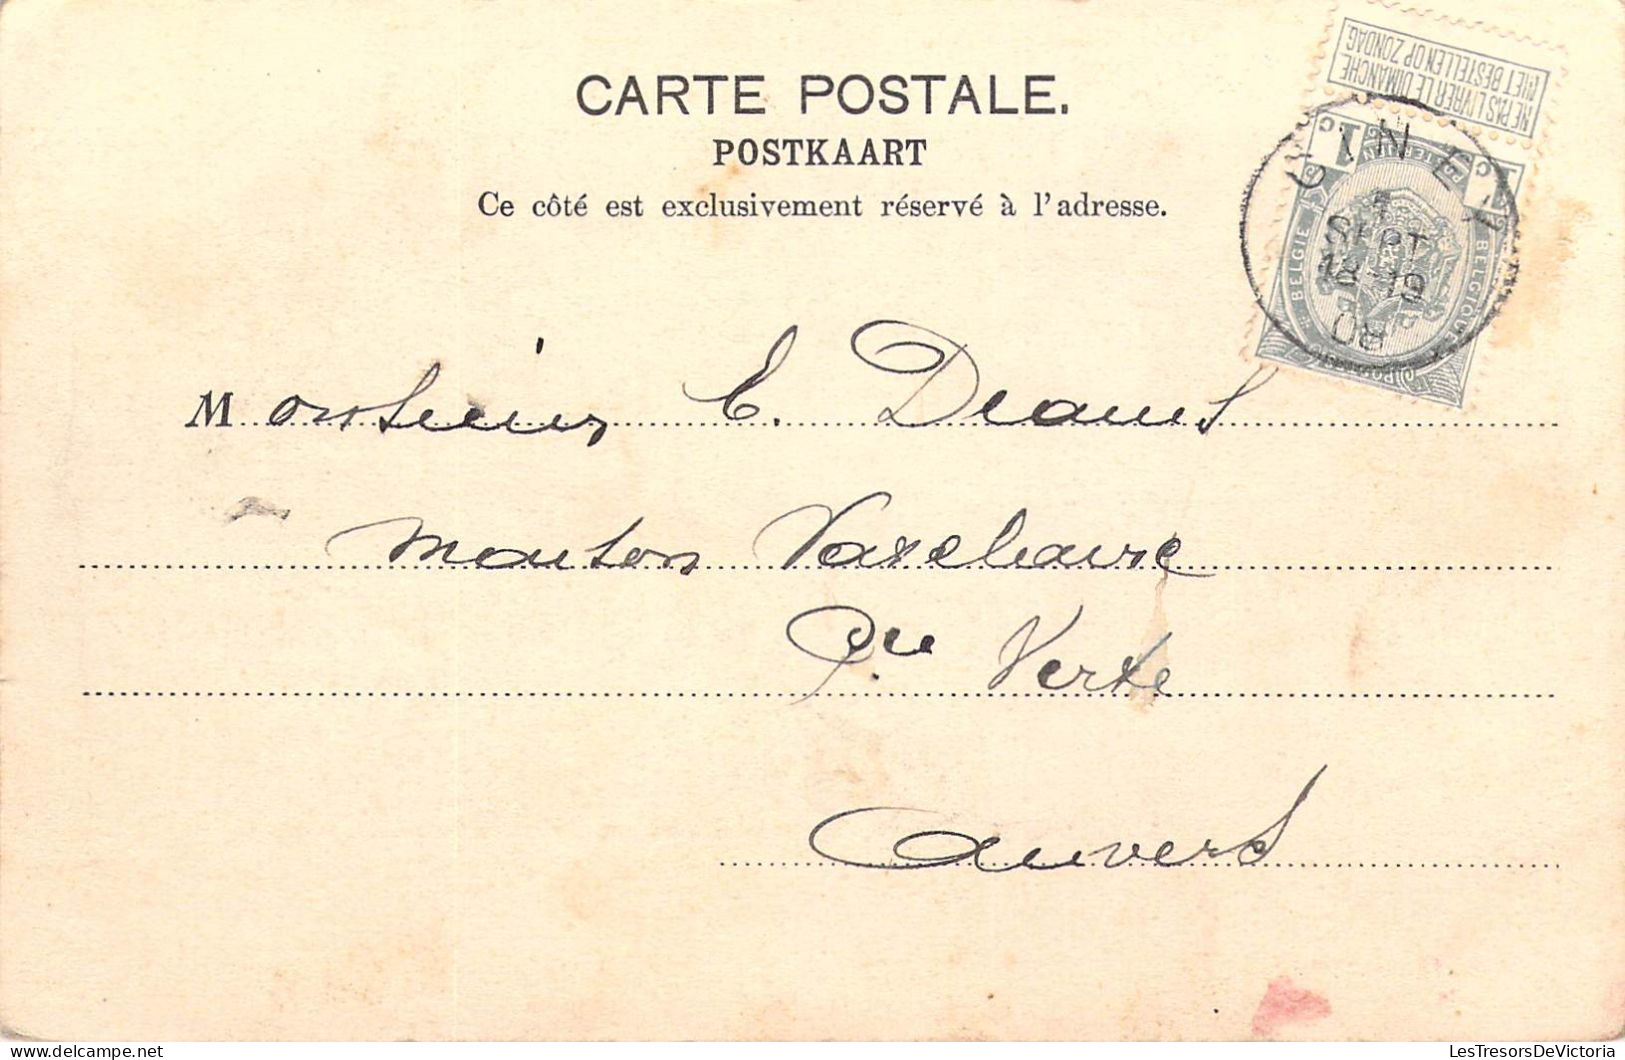 CARTE POSTALE.
POSTKAART
Ce côté est exclusivement réservé à l'adresse.
NE PAS LIVRER LE DIMANCHE
NIET BESTELLEN OP ZONDAG.
1 c 1 c
BELGIE BELGIQUE
CINEY
1
SEPT
18-19
08
Monsieur E. Deams
mouton Vaxelaire
Pce Verte
Anvers
LesTresorsDeVictoria